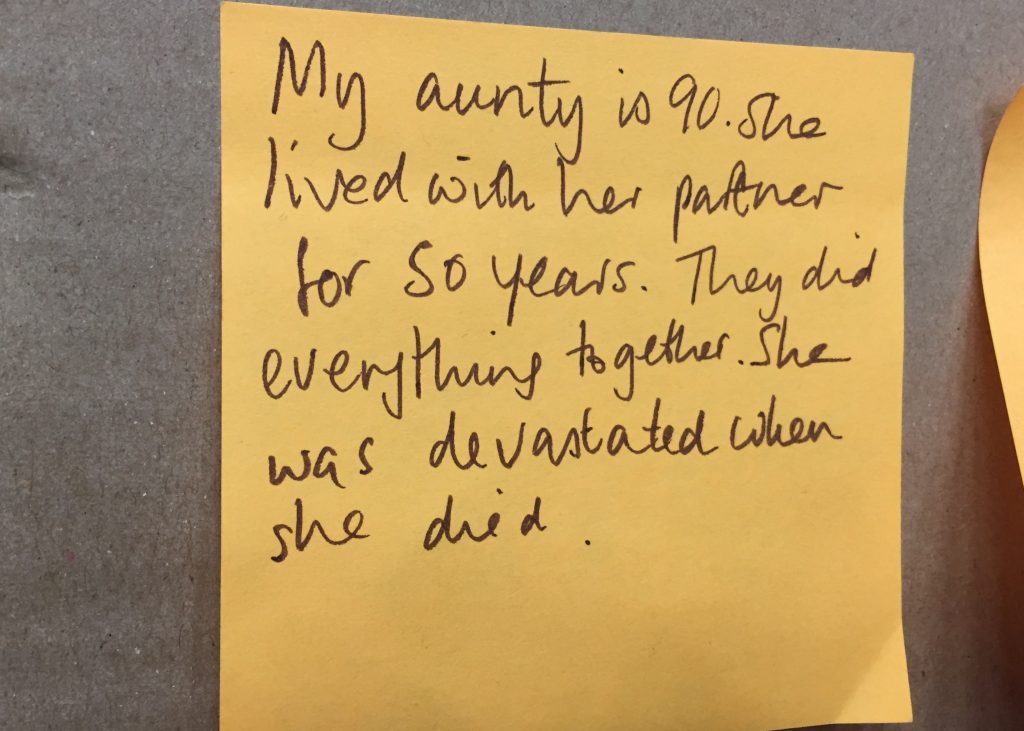 My aunty is 90. She
lived with her partner
for 50 years. They did
everything together. She
was devastated when
she died.